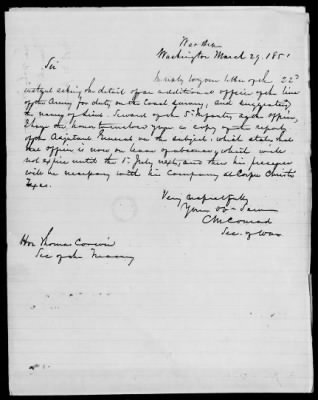 War Dep.
Washington March 29. 1851
Sir
In reply to your letter of the 22d
instant asking the detail of an additional officer of the line
of the Army for duty on the Coast Survey, and suggesting
the name of Lieut. Seward of the 5th Infantry, as the officer,
I have the honor to enclose you a copy of the report
of the Adjutant General on the subject, which states that
the officer is now on leave of absence, which will
not expire until the 1st July next, and then his presence
will be necessary with his company at Corpus Christi
Texas.
Very respectfully
Your Ob. Servt.
C M Conrad
Sec. of War
Hon Thomas Corwin
Sec of the Treasury